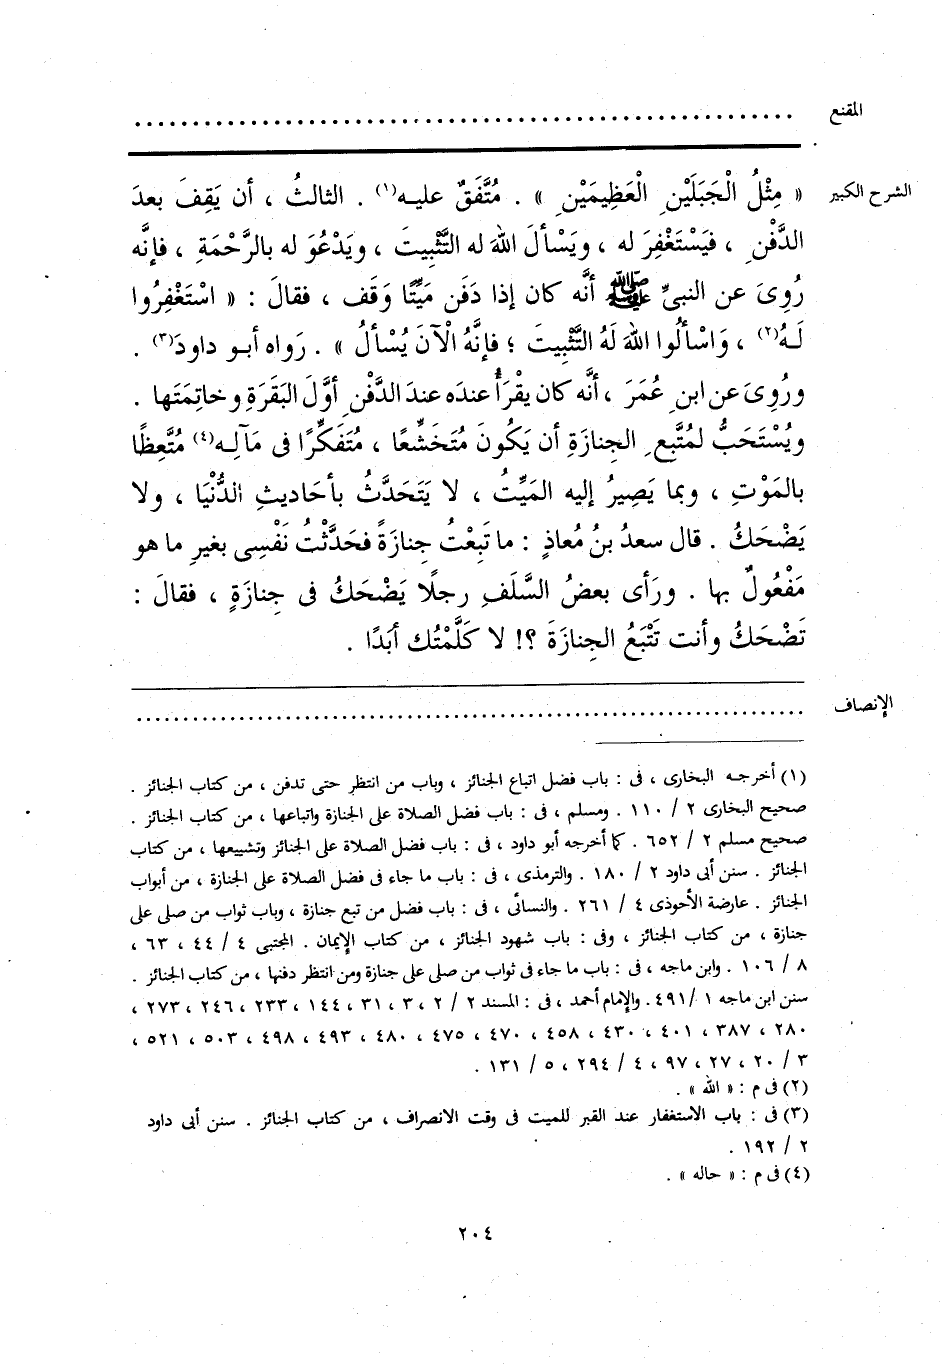 المقنع ............................................................
الشرح الكبير « مِثْلُ الْجَبَلَيْنِ الْعَظِيمَيْنِ » . مُتَّفَقٌ عليه(١) . الثالثُ ، أن يَقِفَ بعدَ
الدَّفْنِ ، فيَسْتَغْفِرَ له ، ويَسْألَ اللهَ له التَّثْبِيتَ ، ويَدْعُوَ له بالرَّحْمَةِ ، فإنَّه
رُوِىَ عن النبىِّ ﷺ أنَّه كان إذا دَفَن مَيِّتًا وَقَف ، فقالَ : « اسْتَغْفِرُوا
لَهُ(٢) ، وَاسْألُوا اللهَ لَهُ التَّثْبِيتَ ؛ فإنَّهُ الْآنَ يُسْألُ » . رَواه أبو داودَ(٣) .
ورُوِىَ عن ابنِ عُمَرَ ، أنَّه كان يقْرَأُ عندَه عندَ الدَّفْنِ أوَّلَ البَقَرَةِ وخاتِمَتَها .
ويُسْتَحَبُّ لمُتَّبِعِ الجِنازَةِ أن يَكُونَ مُتَخَشِّعًا ، مُتَفَكِّرًا فى مَآلِه(٤) مُتَّعِظًا
بالمَوْتِ ، وبما يَصِيرُ إليه المَيِّتُ ، لا يَتَحَدَّثُ بأحَاديثِ الدُّنْيَا ، ولا
يَضْحَكُ . قال سعدُ بنُ مُعاذٍ : ما تَبِعْتُ جِنازَةً فحَدَّثْتُ نَفْسِى بغيرِ ما هو
مَفْعُولٌ بها . ورَأى بعضُ السَّلَفِ رجلًا يَضْحَكُ فى جِنازَةٍ ، فقالَ :
تَضْحَكُ وأنت تَتْبَعُ الجِنازَةَ ؟! لا كَلَّمْتُك أبَدًا .
الإنصاف ............................................................
(١) أخرجه البخارى ، فى : باب فضل اتباع الجنائز ، وباب من انتظر حتى تدفن ، من كتاب الجنائز .
صحيح البخارى ٢ / ١١٠ . ومسلم ، فى : باب فضل الصلاة على الجنازة واتباعها ، من كتاب الجنائز .
صحيح مسلم ٢ / ٦٥٢ . كما أخرجه أبو داود ، فى : باب فضل الصلاة على الجنائز وتشييعها ، من كتاب
الجنائز . سنن أبى داود ٢ / ١٨٠ . والترمذى ، فى : باب ما جاء فى فضل الصلاة على الجنازة ، من أبواب
الجنائز . عارضة الأحوذى ٤ / ٢٦١ . والنسائى ، فى : باب فضل من تبع جنازة ، وباب ثواب من صلى على
جنازة ، من كتاب الجنائز ، وفى : باب شهود الجنائز ، من كتاب الإيمان . المجتبى ٤ / ٤٤ ، ٦٣ ،
٨ / ١٠٦ . وابن ماجه ، فى : باب ما جاء فى ثواب من صلى على جنازة ومن انتظر دفنها ، من كتاب الجنائز .
سنن ابن ماجه ١ / ٤٩١ . والإمام أحمد ، فى : المسند ٢ / ٢ ، ٣ ، ٣١ ، ١٤٤ ، ٢٣٣ ، ٢٤٦ ، ٢٧٣ ،
٢٨٠ ، ٣٨٧ ، ٤٠١ ، ٤٣٠ ، ٤٥٨ ، ٤٧٠ ، ٤٧٥ ، ٤٨٠ ، ٤٩٣ ، ٤٩٨ ، ٥٠٣ ، ٥٢١ ،
٣ / ٢٠ ، ٢٧ ، ٩٧ ، ٤ / ٢٩٤ ، ٥ / ١٣١ .
(٢) فى م : « الله » .
(٣) فى : باب الاستغفار عند القبر للميت فى وقت الانصراف ، من كتاب الجنائز . سنن أبى داود
٢ / ١٩٢ .
(٤) فى م : « حاله » .
٢٠٤